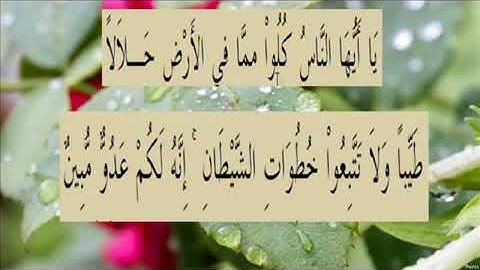 يَا أَيُّهَا النَّاسُ كُلُواْ مِمَّا فِي الأَرْضِ حَــلاَلاً
طَيِّباً وَلاَ تَتَّبِعُواْ خُطُوَاتِ الشَّيْطَانِ ۚ إِنَّهُ لَكُمْ عَدُوٌّ مُّبِينٌ